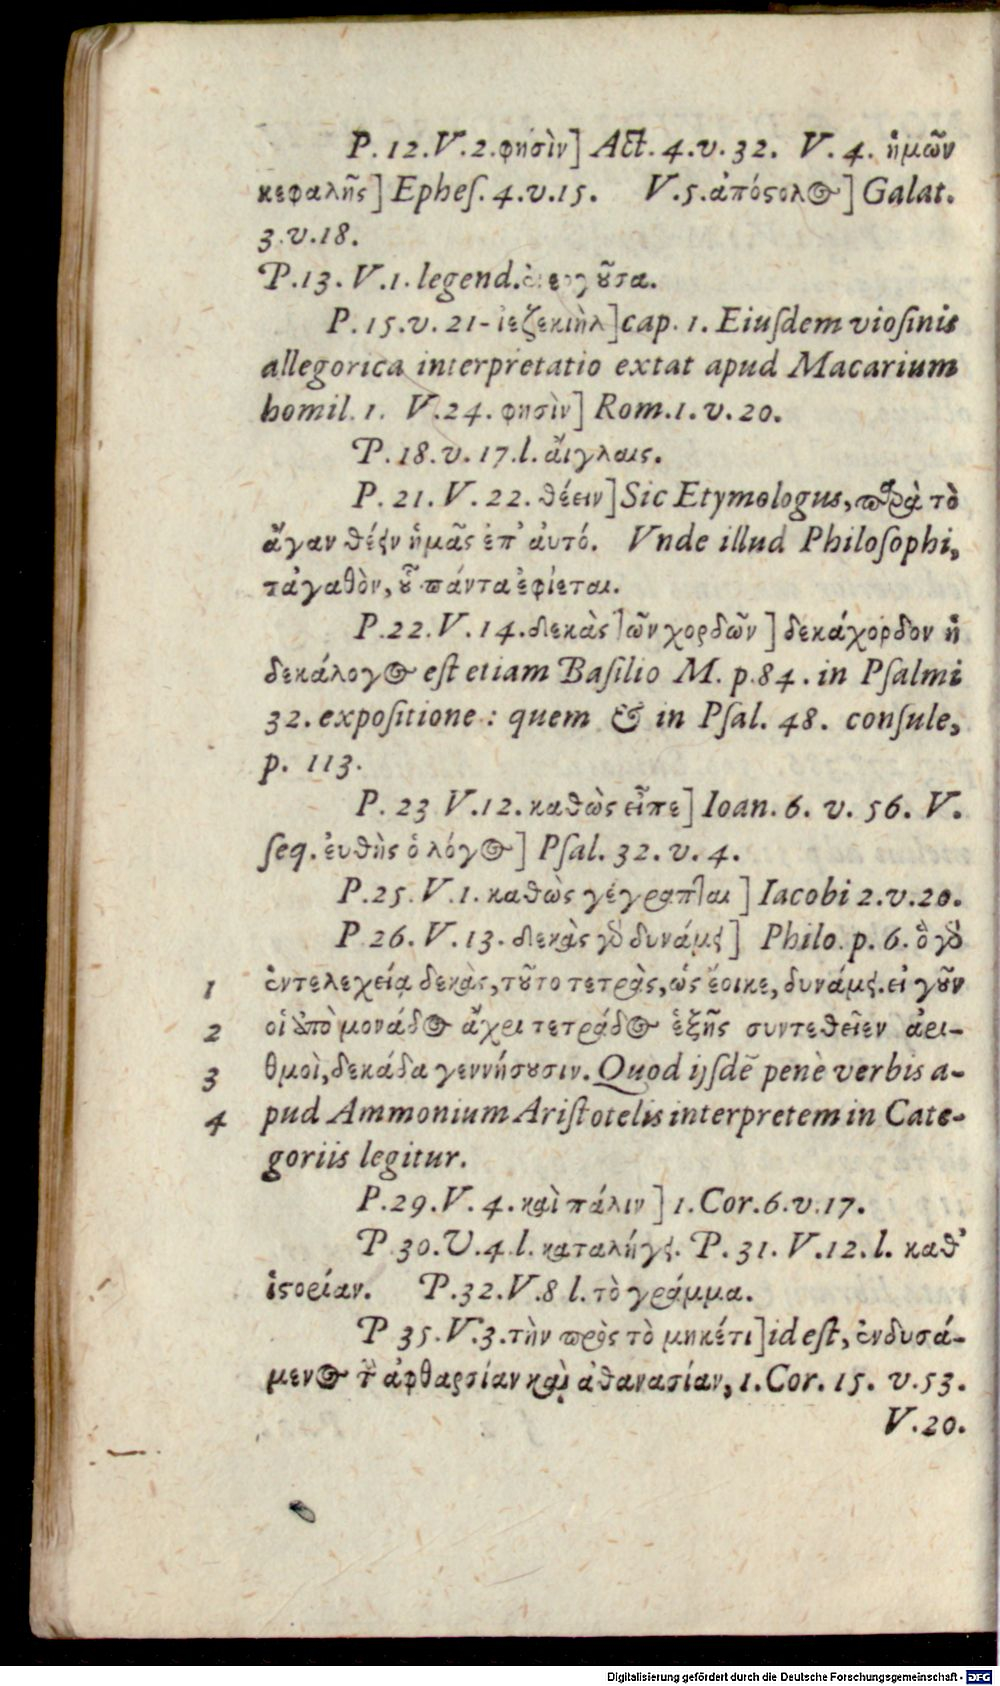 P. 12. V. 2. φησὶν] Act. 4. v. 32. V. 4. ἡμῶν
κεφαλῆς] Epheſ. 4. v. 15. V. 5. ἀπόϛολος] Galat.
3. v. 18.
P. 13. V. 1. legend.
P. 15. v. 21- ἰεζεκιὴλ] cap. 1. Eiuſdem vioſinis
allegorica interpretatio extat apud Macarium
homil. 1. V. 24. φησὶν] Rom. 1. v. 20.
P. 18. v. 17. l. αἴγλαις.
P. 21. V. 22. θέειν] Sic Etymologus, παρὰ τὸ
ἄγαν θέειν ἡμᾶς ἐπ' ἀυτό. Vnde illud Philoſophi,
τἀγαθὸν, οὗ πάντα ἐφίεται.
P. 22. V. 14. δεκὰς τῶν χορδῶν] δεκάχορδον ἡ
δεκάλογος eſt etiam Baſilio M. p. 84. in Pſalmi
32. expoſitione: quem & in Pſal. 48. conſule,
p. 113.
P. 23 V. 12. καθὼς εἶπε] Ioan. 6. v. 56. V.
ſeq. ἐυθὴς ὁ λόγος] Pſal. 32. v. 4.
P. 25. V. 1. καθὼς γέγραπται] Iacobi 2. v. 20.
P 26. V. 13. δεκὰς γὰρ δυνάμει] Philo. p. 6. ὃ γὰρ
1 ἐντελεχείᾳ δεκὰς, τοῦτο τετρὰς, ὡς ἔοικε, δυνάμει. εἰ γοῦν
2 οἱ ἀπὸ μονάδος ἄχρι τετράδος ἑξῆς συντεθεῖεν ἀρι-
3 θμοὶ, δεκάδα γεννήσουσιν. Quod ijſdē penè verbis a-
4 pud Ammonium Ariſtotelis interpretem in Cate-
goriis legitur.
P. 29. V. 4. καὶ πάλιν] 1. Cor. 6. v. 17.
P 30. V. 4 l. καταλήγει. P. 31. V. 12. l. καθ'
ἱϛορίαν. P. 32. V. 8 l. τὸ γράμμα.
P 35. V. 3. τὴν πρὸς τὸ μηκέτι] id eſt, ἐνδυσά-
μενος τὴν ἀφθαρσίαν καὶ ἀθανασίαν, 1. Cor. 15. v. 53.
V. 20.
Digitalisierung gefördert durch die Deutsche Forschungsgemeinschaft - DFG